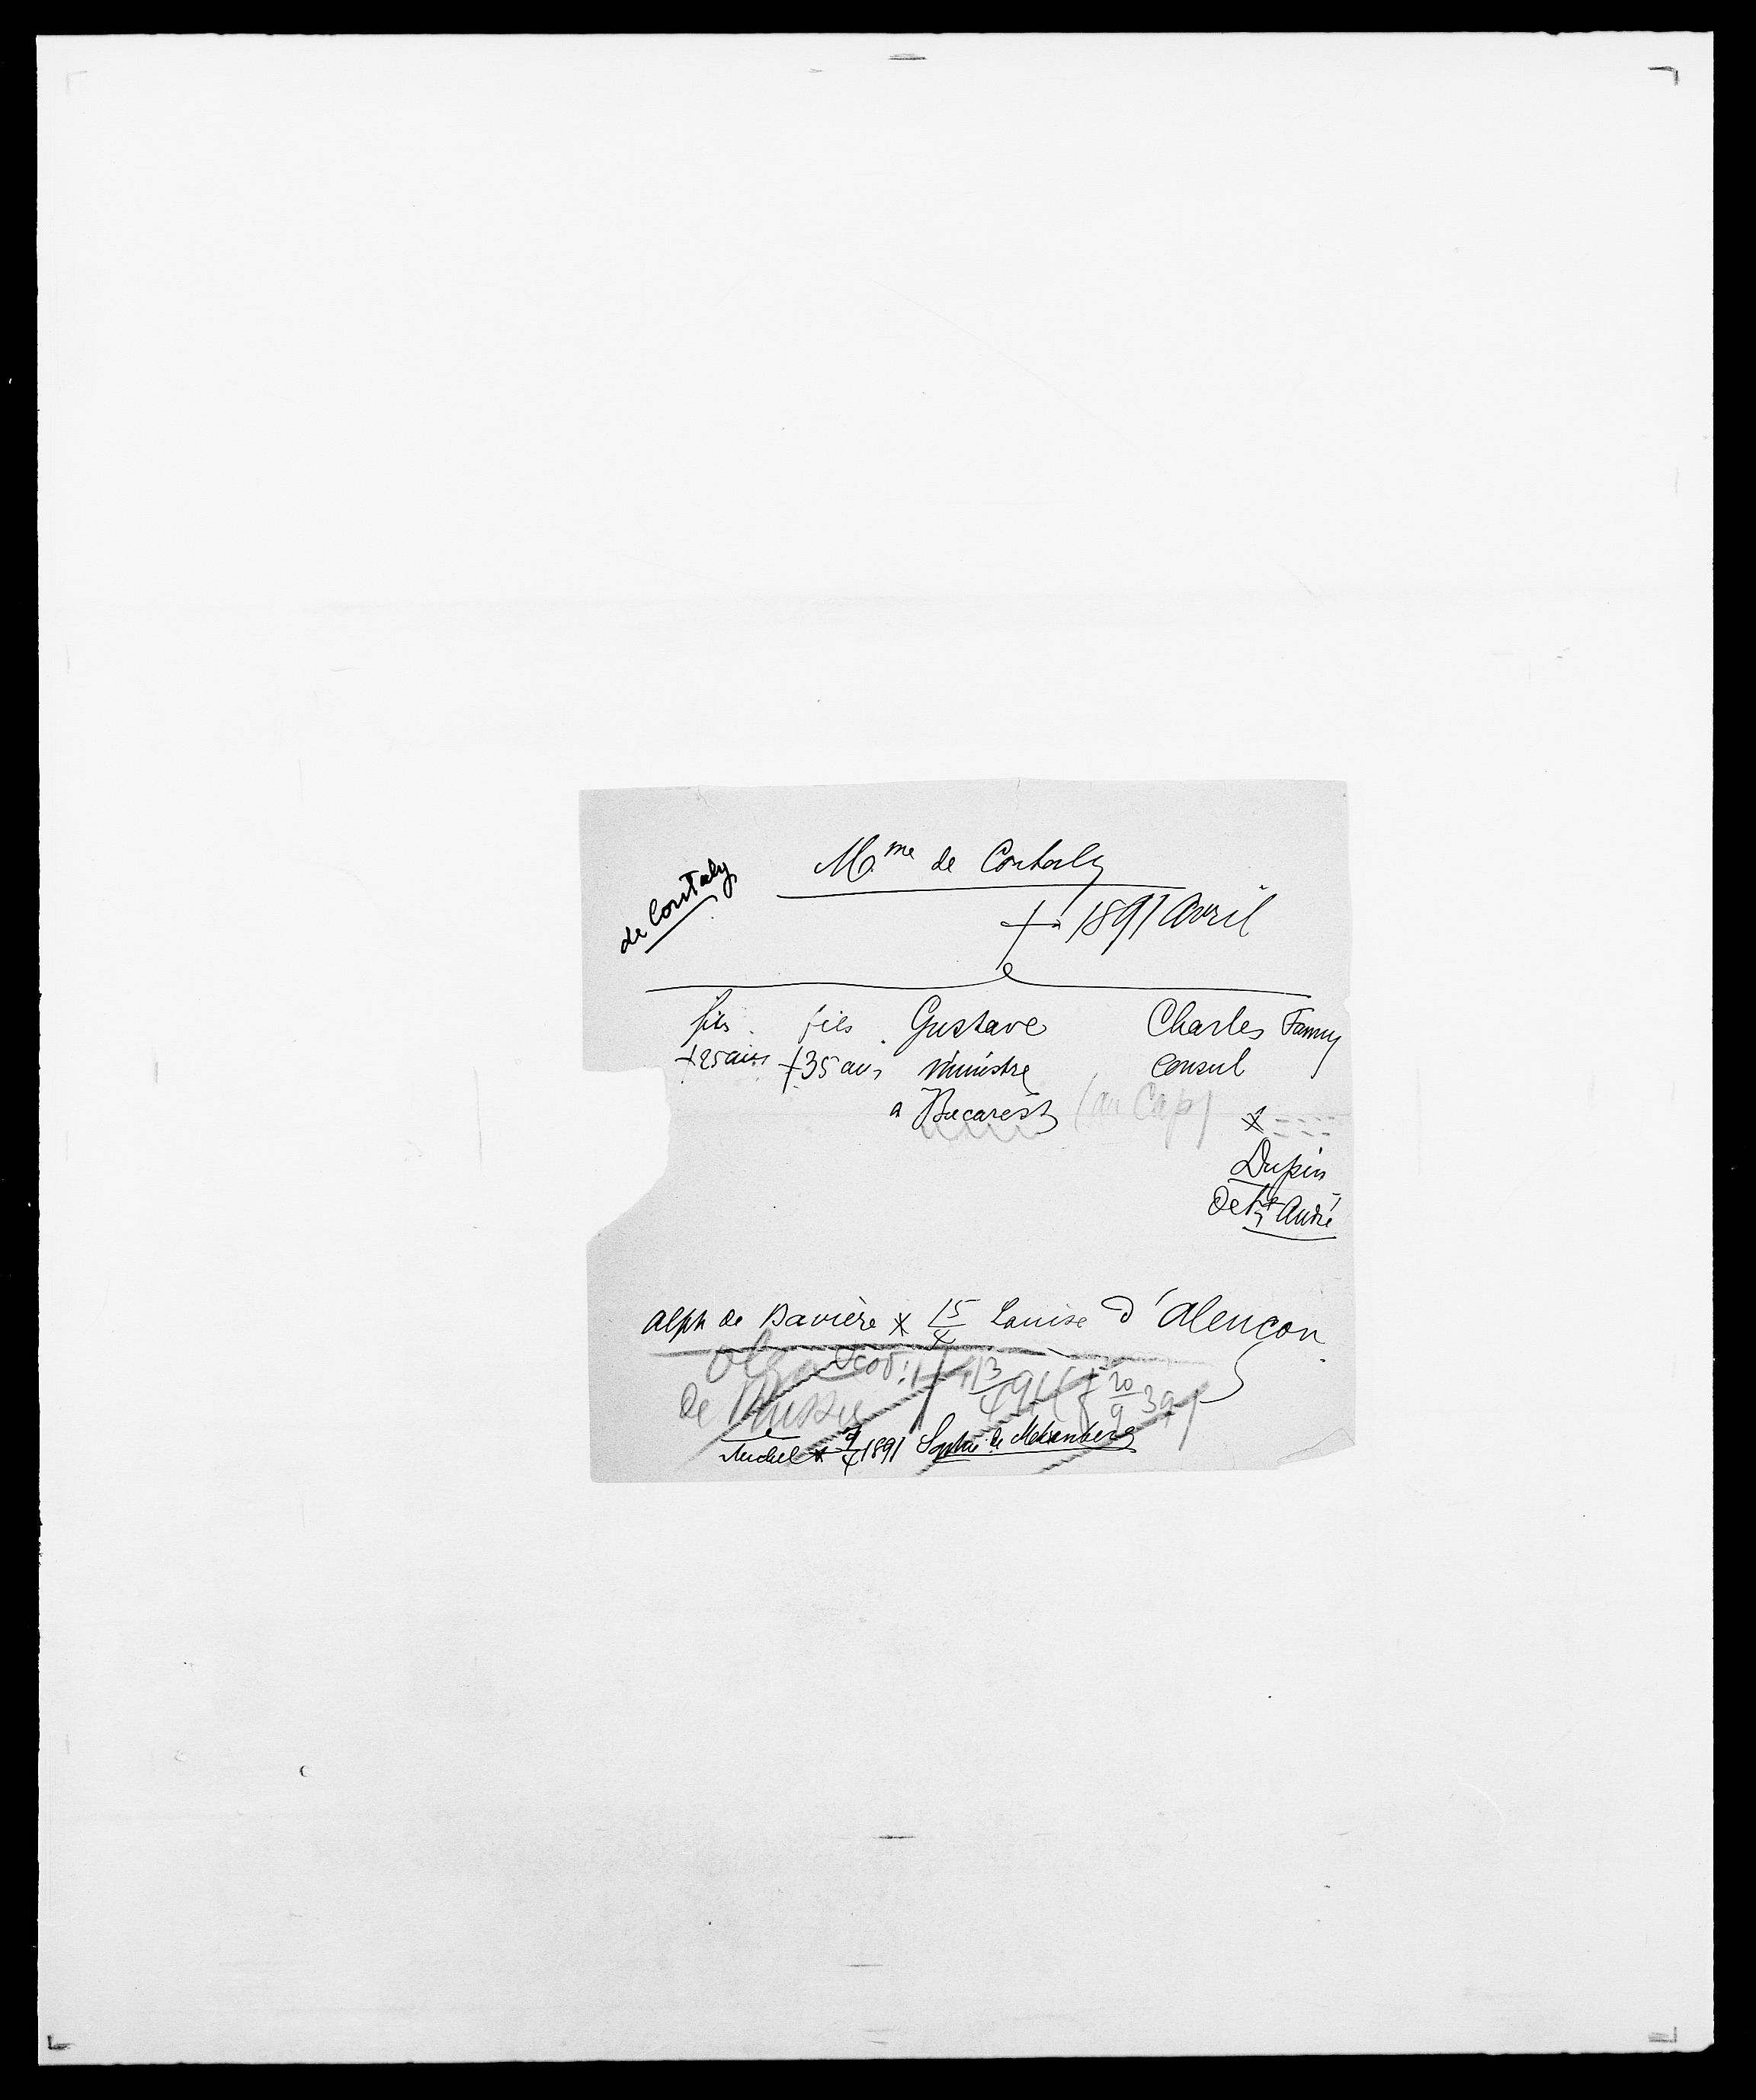 de Coutaly
Mme de Coutaly
+ 1891 Avril
fils fils Gustave Charles Fanny
+ 25 ans + 35 ans ministre consul
a Bucarest (au Cap) x
Dupin
de St André
Alph de Bavière x 15/4 Louise d'Alençon
Olga 13/4 91 († 20/9 39)
de Russie
Michel x 9/4 1891 Sophie de Merenberg